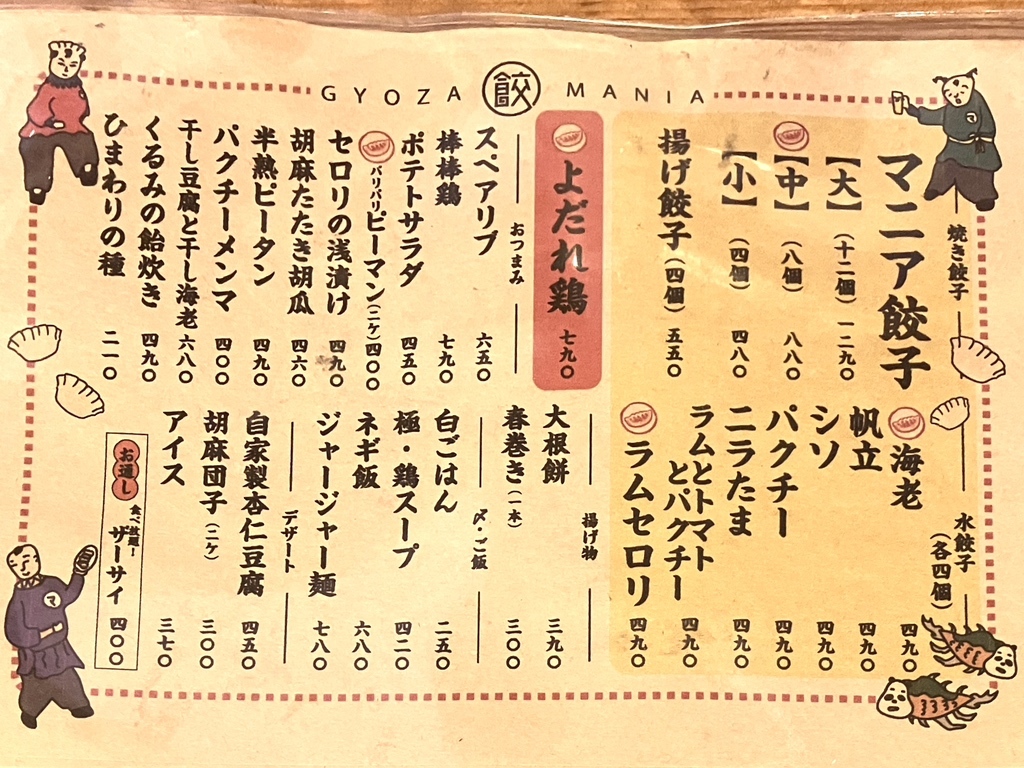 GYOZA 餃 MANIA
焼き餃子
マニア餃子
【大】(十二個) 一二九〇
【中】(八個) 八八〇
【小】(四個) 四八〇
揚げ餃子(四個) 五五〇
水餃子(各四個)
海老 四九〇
帆立 四九〇
シソ 四九〇
パクチー 四九〇
ニラたま 四九〇
ラムとトマトとパクチー 四九〇
ラムセロリ 四九〇
よだれ鶏 七九〇
おつまみ
スペアリブ 六五〇
棒棒鶏 七九〇
ポテトサラダ 四五〇
パリパリピーマン(二ケ) 四〇〇
セロリの浅漬け 四九〇
胡麻たたき胡瓜 四六〇
半熟ピータン 四九〇
パクチーメンマ 四〇〇
干し豆腐と干し海老 六八〇
くるみの飴炊き 四九〇
ひまわりの種 二一〇
揚げ物
大根餅 三九〇
春巻き(一本) 三〇〇
〆・ご飯
白ごはん 二五〇
極・鶏スープ 四二〇
ネギ飯 六八〇
ジャージャー麺 七八〇
デザート
自家製杏仁豆腐 四五〇
胡麻団子(二ケ) 三〇〇
アイス 三七〇
お通し
食べ放題!
ザーサイ 四〇〇
マ